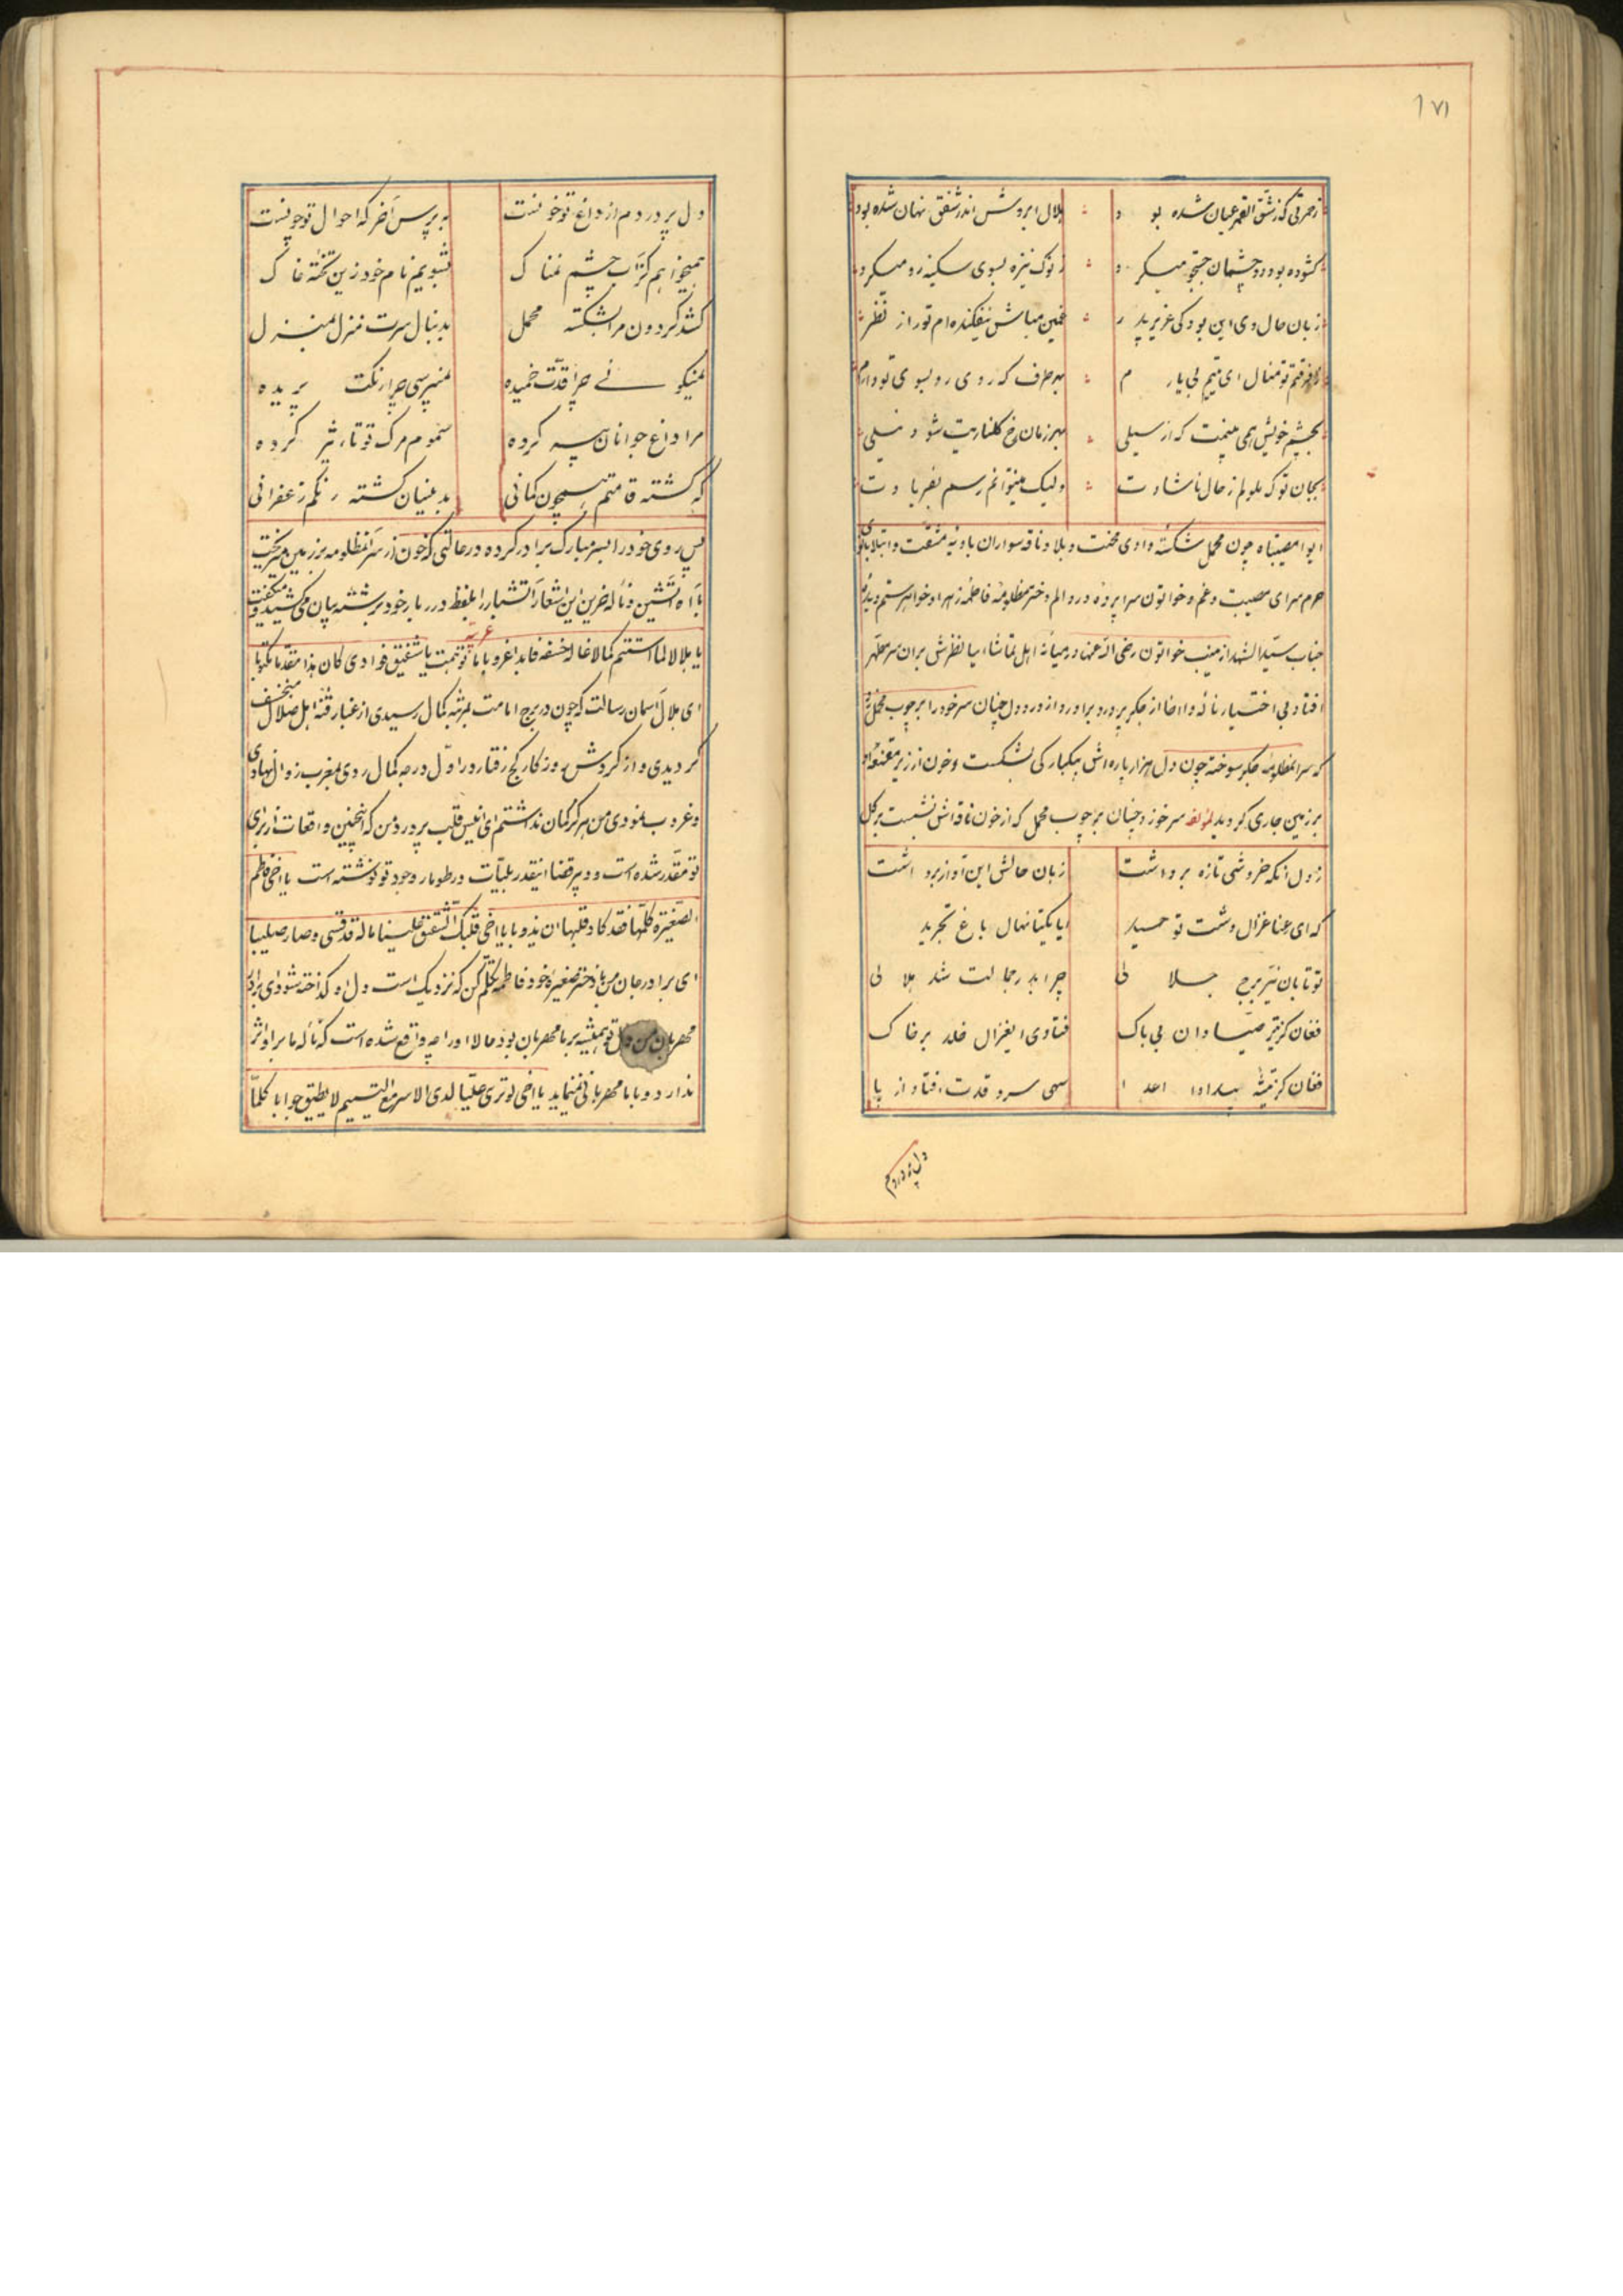 ۱۷۱
ز حمرتی که ز شق القمر عیان شده بود هلال ابروش اندر شفق نهان شده بود
کشوده بود دو چشمان جستجو میکرد ز نوک نیزه بسوی سکینه رو میکرد
زبان حال وی این بود کی عزیز پدر غمین مباش نیفکنده‌ام تو را از نظر
تو منال ای یتیم بی یارم بهر طرف که روی رو بسوی تو دارم
بچشم خویش همی بینمت که از سیلی بهر زمان رخ گلناریت شود نیلی
بجان تو که ملولم ز حال ناشادت ولیک میتوانم رسم بفریادت
ایوا مصیبتاه چون محمل شکسته وادی محنت و بلا و ناقه سواران بادیه مشقت و ابتلا
حرم سرای مصیبت و غم و خواتون سراپرده درد و الم دختر مظلومه فاطمه زهرا و خواهر ستم دیده
جناب سید الشهدا زینب خواتون رضی الله عنها در میانه اهل تماشا نظرش بران سر مطهر
افتاد بی اختیار ناله وا اخا از جگر پر درد براورد و از درد دل چنان سر خود را بر چوب محمل زد
که سر انمظلومه جگر سوخته چون دل هزار پاره‌اش بیکبارکی بشکست و خون از زیر مقنعه او
بر زمین جاری کردید لمؤلفه سر خود زد چنان بر چوب محمل که از خون ناقه‌اش نشست بر گل
ز دل انکه خروشی تازه برداشت زبان حالش این آواز برداشت
که ای رعنا غزال دشت توحید ایا یکتا نهال باغ تجرید
تو تابان نیر برج جلالی چرا بدر جمالت شد هلالی
فغان کز تیر صیادان بی باک فتادی ایغزال خلد بر خاک
فغان کز تیشه بیداد اعدا سهی سرو قدت افتاد از پا
دل پر دردم
دل پر دردم از داغ تو خونست نه پرس آخر که احوال تو چونست
همیخواهم کز آب چشم نمناک بشویم نام خود زین تخته خاک
کشد گردون مرا بشکسته محمل بدنبال سرت منزل بمنزل
نمیگوئی چرا قدت خمیده نمیپرسی چرا رنکت پریده
مرا داغ جوانان پیر کرده سموم مرک تو تاثیر کرده
که گشته قامتم همچون کمانی بدینسان گشته رنگم زعفرانی
پس روی خود را بسر مبارک برادر کرده در حالتی که خون از سر انمظلومه بر زمین میریخت
با آه آتشین و ناله حزین این اشعار آتشبار را بلفظ درربار خود برشته بیان می کشید و میگفت
عربیه
یا هلالا لما استتم کمالا غاله خسفه فابدا غروبا ما توهمت یا شقیق فوادی کان هذا مقدرا مکتوبا
ای هلال آسمان رسالت که چون در برج امامت بمرتبه کمال رسیدی از غبار فتنه اهل ضلال منخسف
کردیدی و از کردش روزکار کج رفتار در اول درجه کمال روی بمغرب زوال نهادی
و غروب نمودی من هرکز کمان نداشتم ای انیس قلب پر درد من که اینچنین واقعات از برای
تو مقدر شده است و دبیر قضا اینقدر بلیات در طومار وجود تو نوشته است یا اخی فاطم
الصغیرة کلمها فقد کاد قلبها ان یذوبا یا اخی قلبک الشفیق علینا ماله قد قسی و صار صلیبا
ای برادر جان من با دختر صغیره خود فاطمه تکلم کن که نزدیک است دل او کداخته شود ای برادر
مهربان من دل تو همیشه بر ما مهربان بود حالا او را چه واقع شده است که ناله ما بر او اثر
ندارد و با ما مهربانی نمینماید یا اخی لو تری علیا لدی الاسر مع الیتیم لا یطیق جوابا کلما